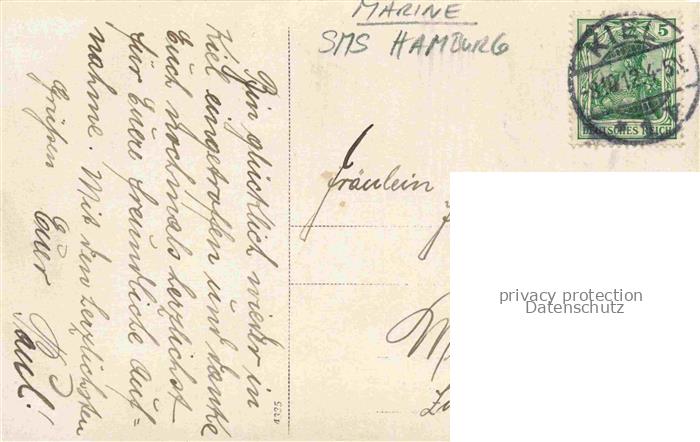 MARINE
SMS HAMBURG
KIEL
5
DEUTSCHES REICH
Bin glücklich wieder in
Kiel eingetroffen und danke
Euch nochmals herzlichst
für Eure freundliche Auf=
nahme. Mit den herzlichsten
Grüßen
Euer
Paul!
Fräulein
5225
privacy protection
Datenschutz